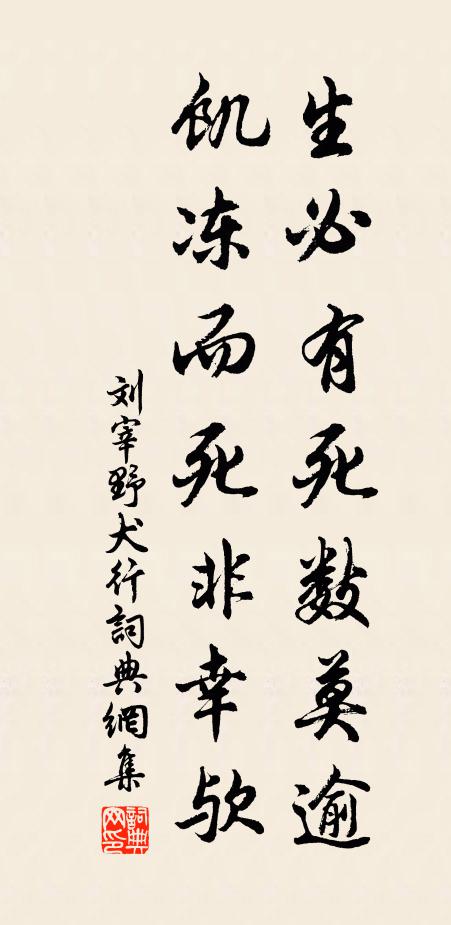 生必有死数莫逾
飢冻而死非幸欤
刘宰野犬行詞典網集
詞典网印